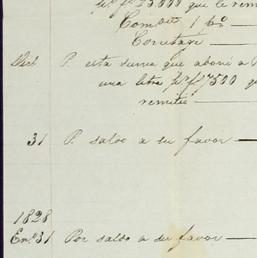 pr. fs. 25.000 que le rem
Combio 1 %
Corretaje
Dicb. P. esta suma que aboné a
una letra pr. f. 7500 q
remitió
31 P. saldo a su favor
1828
En.o 31 Por saldo a su favor